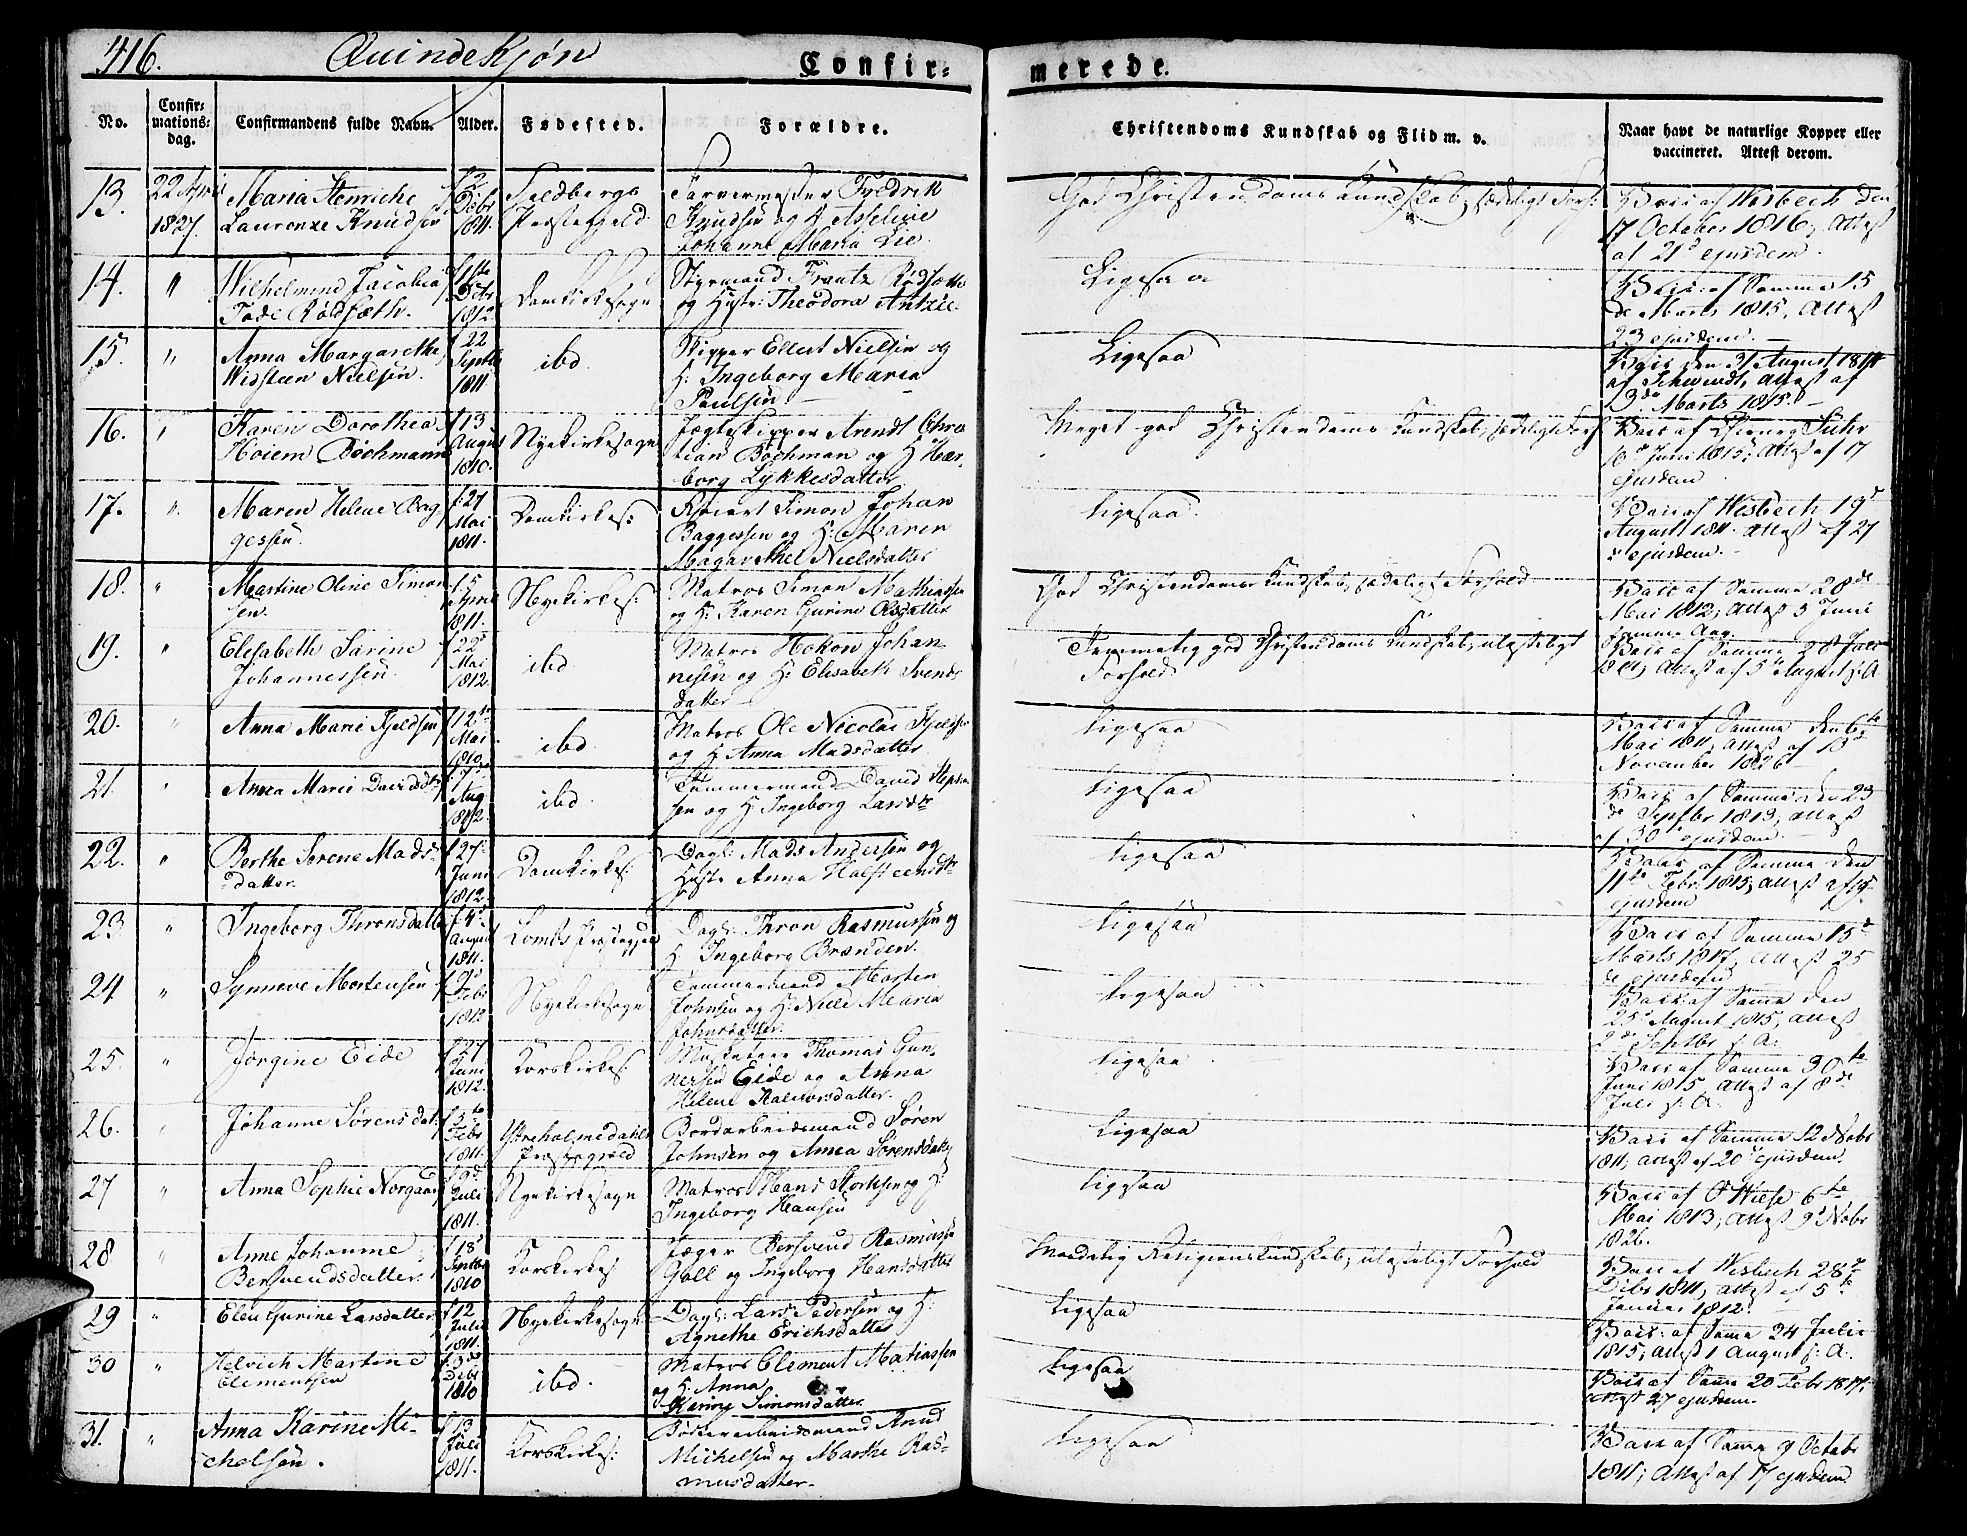 416.
Quindekjøn
Confir-
merede.
No.
Confir-
mations-
dag.
Confirmandens fulde Navn.
Alder.
Fødested.
Forældre.
Christendoms Kundskab og Flid m. v.
Naar havt de naturlige Kopper eller
vaccineret. Attest derom.
13. 22 April
1827.
Maria Henriche
Lauronze Knudsen
f 2
Debr
1811.
Præstegjeld.
Farvermester
Knudsen og H.
Johanne Maria Lie.
God Christendoms Kundskab, sædeligt Forh:
Vacc af Wesbech den
17 October 1816, Attest
af 21 ejusdem.
14. "
Wilhelmine Jacobia
Debr
1812.
Domkirkesogn
Styrmand Frantz
og Hustr: Theodora
Ligesaa
Vacc: af Samme 15
de Marts 1815, Attest
23 ejusdem. —
15. "
Anna Margarethe
Nielsen.
f 22
Septbr
1811.
ibd.
Skipper Ellert Nielsen og
H: Ingeborg Maria
Paulsen —
Ligesaa
Vacc den 31 August 1811
af Schwindt, Attest af
13de Marts 1815. —
16. "
Karen Dorothea
Hoiem Bochmann
f 13
August
1810.
Nyekirkesogn
Jægteskipper Arendt Chris
tian Bochman og H Her-
borg Lykkesdatter
Meget god Christendoms Kundskab, sædeligt Forh
Vacc af Suhr
10 Juni 1815, Attest af 17
ejusdem
17. "
Maren Helene Bag
gessen.
f: 27
Mai
1811.
Domkirkes:
Simon Johan
Baggessen og H: Maren
Magarethe Nielsdatter
Ligesaa.
Vacc af Wesbech 19
August 1811. Attest af 27
ejusdem. —
18. "
Martine Oline Simon
sen.
f 5
April
1811.
Nyekirkes:
Matros Simon Mathiassen
og H: Karen Gurine Olsdatter
God Christendoms Kundskab, sædeligt Forhold
Vacc af Samme 28de
Mai 1812, Attest 5 Juni
samme Aar.
19. "
Elisabeth Sarine
Johannessen.
f. 22
Mai
1812.
ibd.
Matros Hokon Johan-
nesen og H: Elisabeth Svends
datter —
Temmelig god Christendoms Kundskab, ulasteligt
Forhold
Vacc af Samme 28 Juli
Attest af 5 August s: A
20. "
Anna Marie Kjeldsen
f 12te
Mai
1810.
ibd.
Matros Ole Nicolai
og H Anna Madsdatter
Ligesaa
Vacc af Samme den 6te
Mai 1811, Attest af 13
November 1826 —
21. "
Anna Marie Davidsdtr
f 7
Aug
1812.
ibd.
Tømmermand David
sen og H Ingeborg Larsdtr
Ligesaa
Vacc af Samme den 23
de Septbr 1813, Attest
af 30 ejusdem.
22. "
Berthe Serene Mads-
datter.
f 27
Juni
1812.
Domkirkes:
Dagl: Mads Andersen og
Hustr Anna
Ligesaa
Vacc af Samme den
11te Febr. 1815, Attest af 19
ejusdem
23 "
Ingeborg Thronsdatter
f. 4
August
1811.
Loms Præstegjeld
Dagl: Thron Rasmussen og
H Ingeborg Brænden.
Ligesaa
Vacc af Samme 15
Marts 1817, Attest 25
de ejusdem
24 "
Synneve Mortensen
f. 9
Debr
1813
Nyekirkesogn
Tømmermand Morten
Johnsen og H: Maria
Johnsdatter.
Ligesaa
Vacc af Samme den
25 August 1815, Attest
2de Septbr s. A.
25. "
Jørgine Eide
f 27
Juni
1812.
Korskirkes:
Thomas Gun-
nersen Eide og Anna
Helene Halvorsdatter.
Ligesaa
Vacc af Samme 30te
Juni 1815, Attest af 8de
Juli s: A.
26. "
Johanne Sørensdat:
f 5te
Debr
1811.
Ytreholmedahls
Præstegjeld
Bordarbeidsmand Søren
Johnsen og Anna Sørensdatr
Ligesaa
Vacc af Samme 12 Novbr
1811; Attest af 20 ejusdem.
27 "
Anna Sophie Norgaard
f 9
Juli
1811.
Nyekirkesogn
Matros Hans og H:
Ingeborg Hansen
Ligesaa
Vacc af O Wiese 6te
Mai 1813, Attest 9 Novbr
1826.
28 "
Anne Johanne
Bersvendsdatter.
f 18
Septbr
1810
Korskirkes
Jæger Bersvend Rasmusse
Goll og Ingeborg Hansdatter
Maadelig Religionskundskab, ulasteligt Forhold
Vacc af Wesbech 28
Debr 1811, Attest af 5te
Januar 1812.
29 "
Elen Gurine Larsdatter
f 12
Juli
1811.
Nyekirkesogn
Dagl: Lars Pedersen og H:
Agnethe Erichsdatter
Ligesaa
Vacc: af Samme 24 Julii
1815, Attest 1 August s: A.
30 "
Helvich Martine
Clementsen
Debr
1810
ibd.
Matros Clement Matiassen
og H: Anna
Karine Simonsdatter.
Ligesaa
Vacc af Samme 20 Febr 1811,
Attest 27 ejusdem.
31. "
Anna Karine Mi-
chelsen.
f 13
Juli
1811.
Korskirkes:
Knud
Michelsen og Marthe Ras-
musdatter.
Ligesaa
Vacc af Samme 9 Octobr
1811; Attest af 17 ejusdem